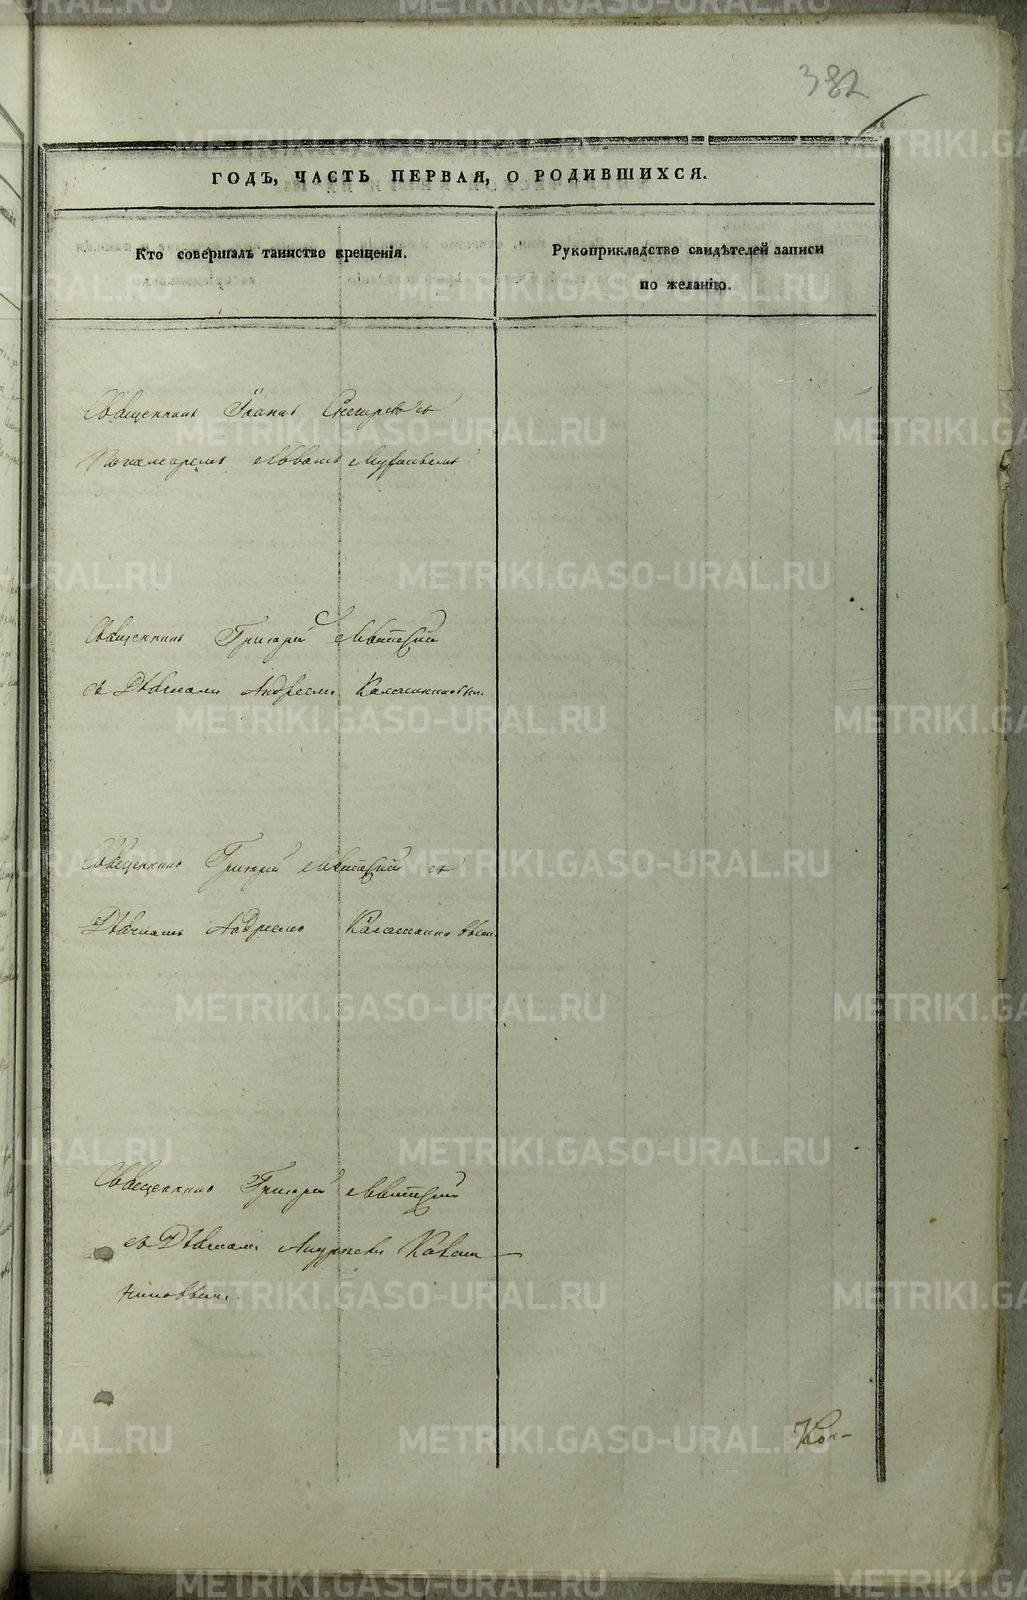 382
ГОДЪ, ЧАСТЬ ПЕРВАЯ, О РОДИВШИХСЯ.
Кто совершалъ таинство крещенія.
Рукоприкладство свидѣтелей записи
по желанію.
Священникъ Іоаннъ Снегиревъ съ
Пономаремъ
Священникъ Григорій Левитскій
съ Дьячкомъ Андреемъ Калашниковымъ.
Священникъ Григорій Левитскій съ
Дьячкомъ Андреемъ Калашниковымъ.
Священникъ Григорій Левитскій
съ Дьячкомъ Андреемъ Калаш-
никовымъ.
METRIKI.GASO-URAL.RU